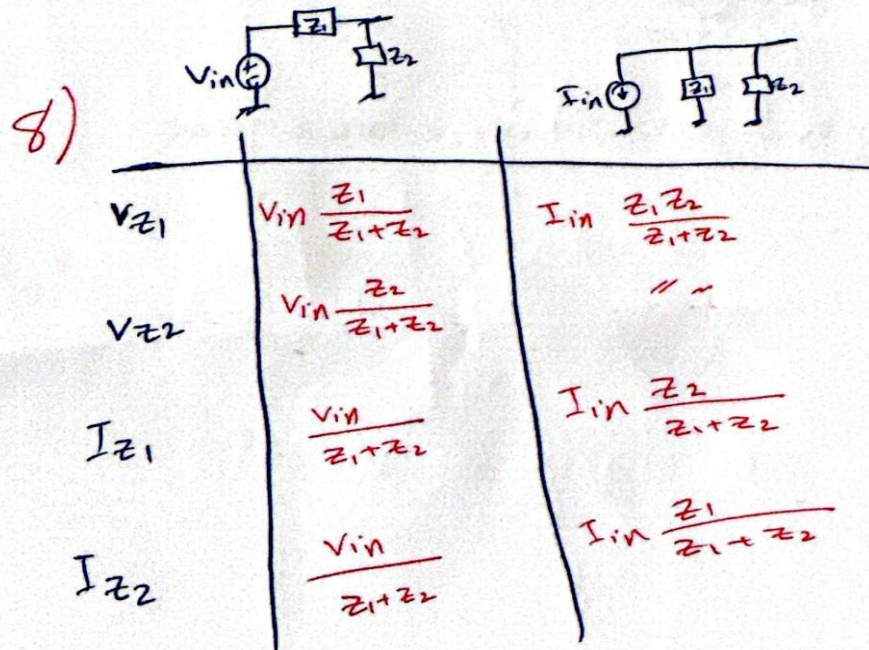 Z1
Z2
Vin + -
Iin Z1 Z2
8)
VZ1 Vin Z1/(Z1+Z2) Iin Z1Z2/(Z1+Z2)
VZ2 Vin Z2/(Z1+Z2) " "
IZ1 Vin/(Z1+Z2) Iin Z2/(Z1+Z2)
IZ2 Vin/(Z1+Z2) Iin Z1/(Z1+Z2)